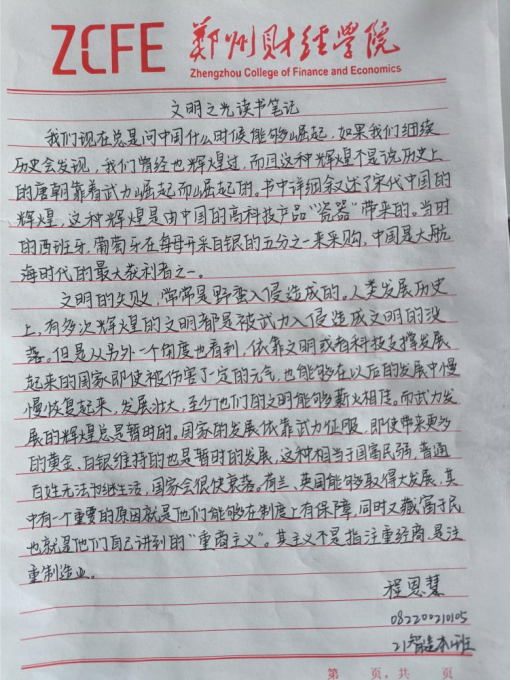 ZCFE 郑州财经学院
Zhengzhou College of Finance and Economics
文明之光读书笔记
我们现在总是问中国什么时候能够崛起,如果我们细续
历史会发现,我们曾经也辉煌过,而且这种辉煌不是说历史上
的唐朝靠着武力崛起而崛起的。书中详细叙述了宋代中国的
辉煌,这种辉煌是由中国的高科技产品“瓷器”带来的。当时
的西班牙,葡萄牙在每年开采白银的五分之一来采购,中国是大航
海时代的最大获利者之一。
文明的失败,常常是野蛮入侵造成的。人类发展历史
上,有多次辉煌的文明都是被武力入侵造成文明的没
落。但是从另外一个角度也看到,依靠文明或者科技支撑发展
起来的国家即使被伤害了一定的元气,也能够在以后的发展中慢
慢恢复起来,发展壮大,至少他们的文明能够薪火相传。而武力发
展的辉煌总是暂时的。国家的发展依靠武力征服,即使带来更多
的黄金、白银维持的也是暂时的发展,这种相当于国富民弱,普通
百姓无法为继生活,国家会很快衰落。荷兰、英国能够取得大发展,其
中有一个重要的原因就是他们能够在制度上有保障,同时又藏富于民
也就是他们自己讲到的“重商主义”。其主义不是指注重经商,是注
重制造业。
程恩慧
082200210105
21智造本1班
第 页,共 页